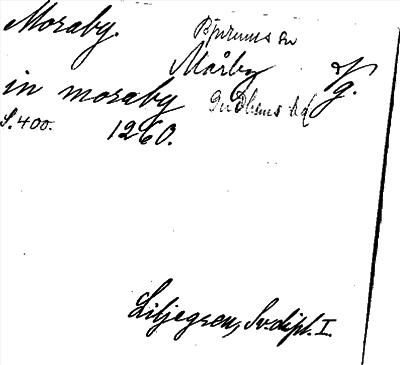 Moraby. Bjurums sn
Mårby Vg.
in moraby Gudhems hd
S. 400. 1260.
Liljegren, Sv. dipl. I.